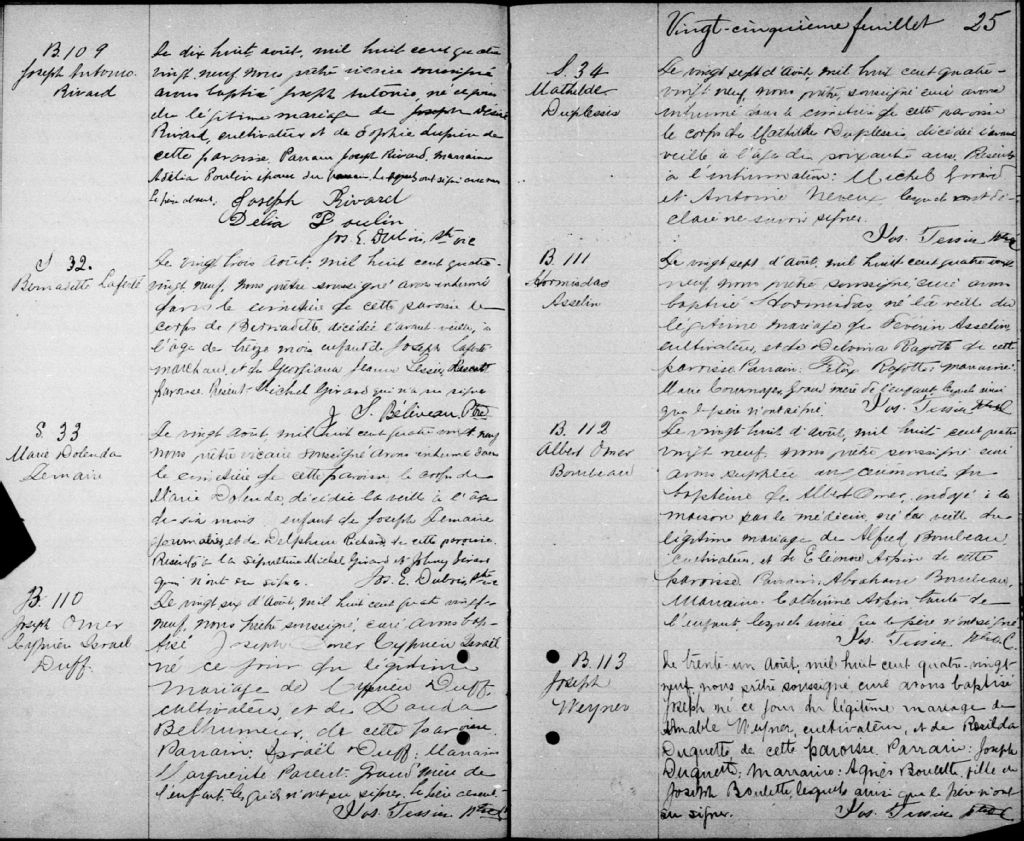 B. 109
Joseph Antonio
Rivard
Le dix huit août, mil huit cent quatre
vingt neuf nous prêtre vicaire soussigné
avons baptisé Joseph Antonio, né ce jour
du légitime mariage de Joseph
Rivard, cultivateur et de Sophie Lupien de
cette paroisse. Parrain Joseph Rivard, marraine
Adélia Poulin épouse du parrain. Lesquels ont signé avec nous
Le père absent. Joseph Rivard
Delia Poulin
Jos. E. Dubois, Ptre vic
S 32.
Bernadette Laferté
Le vingt trois Août, mil huit cent quatre-
vingt neuf, nous prêtre soussigné avons inhumé
dans le cimetière de cette paroisse le
corps de Bernadette, décédée l'avant veille, à
l'âge de treize mois enfant de Joseph Laferté
marchand, et de Georgiana Jeanne
paroisse. Présent Michel Girard qui n'a su signer
J S. Béliveau Ptre
S. 33
Marie Dolenda
Lemaire
Le vingt Août, mil huit cent quatre vingt neuf
nous prêtre vicaire soussigné avons inhumé dans
le cimetière de cette paroisse, le corps de
Marie Dolenda, décédée la veille à l'âge
de six mois, enfant de Joseph Lemaire
journalier, et de Delphine Richard, de cette paroisse
Présents à la sépulture Michel Girard et Johnny
qui n'ont su signer. Jos. E. Dubois, Ptre vic
B. 110
Joseph Omer
Cyprien Israel
Duff.
Le vingt six d'Août, mil huit cent quatre vingt-
neuf, nous prêtre soussigné, curé avons bap-
tisé Joseph Omer Cyprien Israël
né ce jour du légitime
mariage de Cyprien Duff,
cultivateur, et de Landa
Belhumeur, de cette paroisse
Parrain: Israël Duff; Marraine
Marguerite Parent. Grand'mère de
l'enfant lesquels n'ont su signer. Le père absent.
Jos. Tessier Ptre C
Vingt-cinquième feuillet 25
S. 34
Mathilde
Duplessis
Le vingt sept d'Août, mil huit cent quatre-
vingt neuf, nous prêtre, soussigné curé avons
inhumé dans le cimetière de cette paroisse
le corps de Mathilde Duplessis, décédée l'avant
veille à l'âge de soixante ans. Présents
à l'inhumation: Michel Girard
et Antoine Neveux lesquels ont dé-
claré ne savoir signer.
Jos. Tessier Ptre C
B. 111
Hormisdas
Asselin
Le vingt sept d'Août, mil huit cent quatre vingt
neuf, nous prêtre soussigné, curé avons
baptisé Hormisdas, né la veille du
légitime mariage de Séverin Asselin,
cultivateur, et de Delvina Ragotte de cette
paroisse Parrain: Félix Ragotte; marraine:
Marie Tournager, Grand'mère de l'enfant lesquels ainsi
que le père n'ont signé. Jos. Tessier Ptre C
B. 112
Albert Omer
Boudeau
Le vingt huit d'août, mil huit cent quatre
vingt neuf, nous prêtre soussigné curé
avons suppléé aux cérémonies du
baptême de Albert Omer, ondoyé à la
maison par le médecin, né la veille du
légitime mariage de Alfred Boudeau,
cultivateur, et de Eléonore Arpin de cette
paroisse Parrain: Abraham Boudeau,
Marraine: Catherine Arpin tante de
l'enfant lesquels ainsi que le père n'ont signé
Jos. Tessier Ptre C.
B. 113
Joseph
Weyner
Le trente-un Août, mil huit cent quatre-vingt
neuf, nous prêtre soussigné curé avons baptisé
Joseph né ce jour du légitime mariage de
Amable Weyner, cultivateur, et de Rosilda
Duquette, de cette paroisse. Parrain: Joseph
Duquette; marraine: Agnès Boulette, fille de
Joseph Boulette, lesquels ainsi que le père n'ont
su signer. Jos. Tessier Ptre C